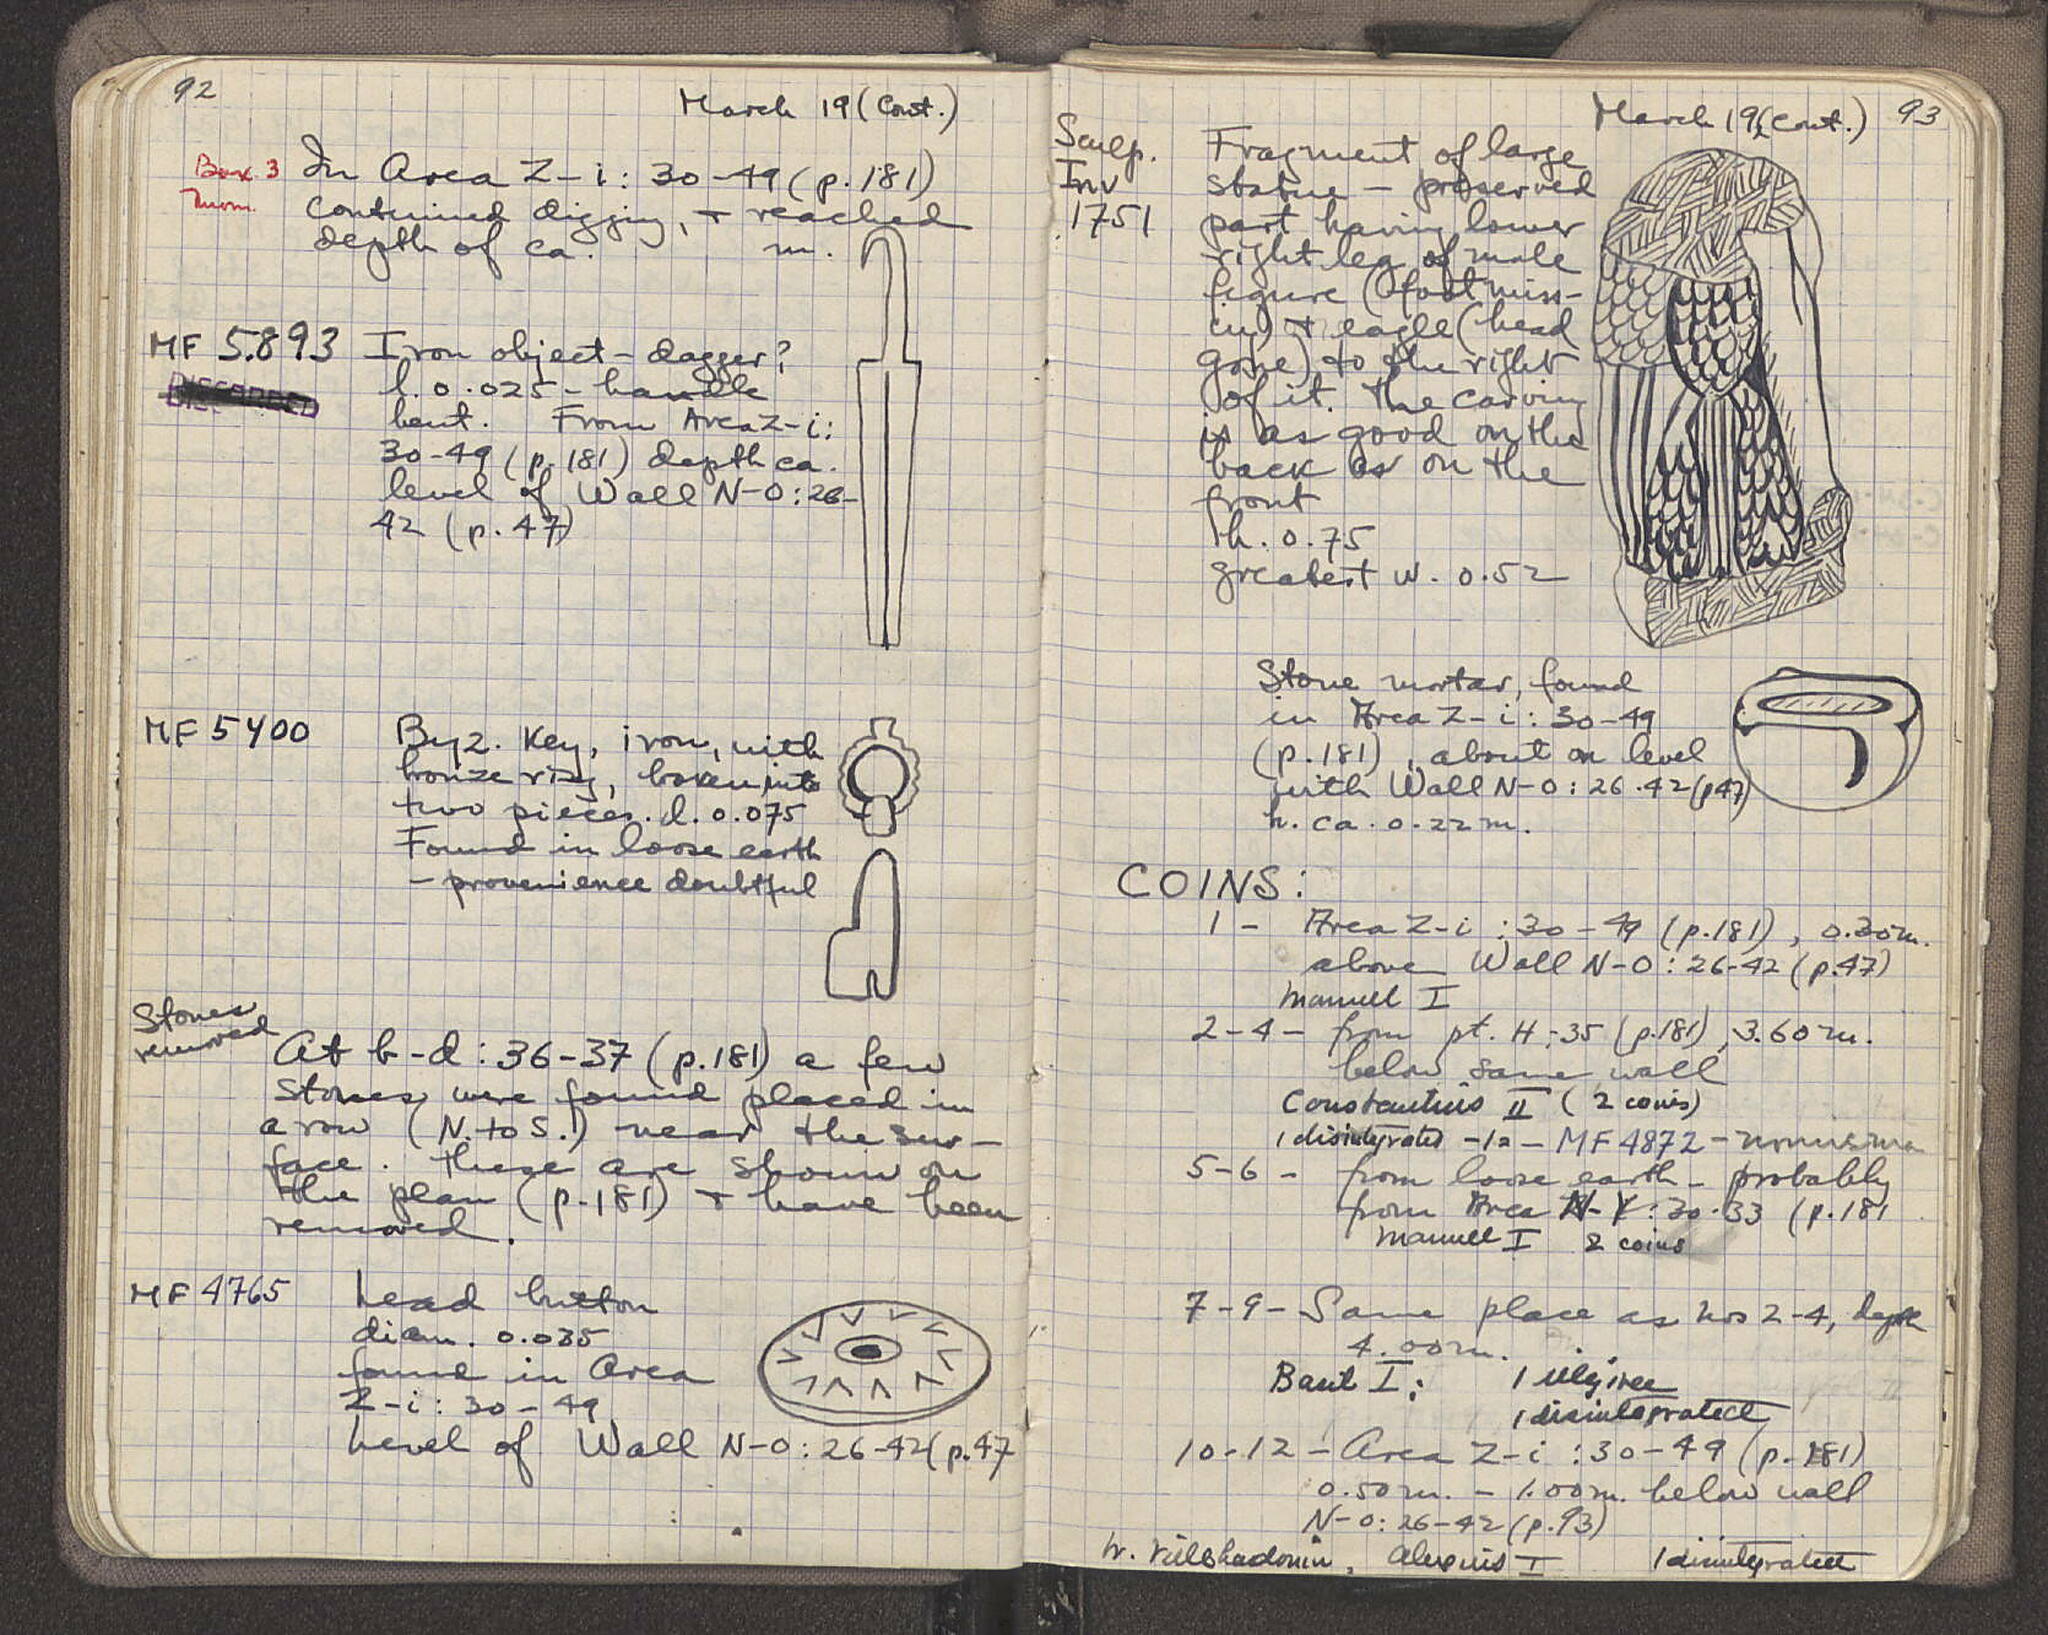 92
March 19 (Cont.)
Box 3
In Area Z-i: 30-49 (p. 181)
continued digging, + reached
depth of ca. m.
MF 5893
DISCARDED
Iron object - dagger?
l. 0.025 - handle
bent. From Area Z-i:
30-49 (p. 181) depth ca.
level of Wall N-O: 26-
42 (p. 47)
MF 5400
Byz. Key, iron, with
bronze ring, broken into
two pieces. l. 0.075
Found in loose earth
- provenience doubtful
Stones
removed
At b-d: 36-37 (p. 181) a few
stones were found placed in
a row (N. to S.) near the sur-
face. These are shown on
the plan (p. 181) + have been
removed.
MF 4765
Lead button
diam. 0.035
found in Area
Z-i: 30-49
Level of Wall N-O: 26-42 (p. 47
March 19, (Cont.)
93
Sculp.
Inv
1751
Fragment of large
statue - preserved
part having lower
right leg of male
figure (foot miss-
ing) + eagle (head
gone) to the right
of it. The carving
is as good on the
back as on the
front
h. 0.75
greatest w. 0.52
Stone mortar, found
in Area Z-i: 30-49
(p. 181), about on level
with Wall N-O: 26-42 (p 47)
h. ca. 0.22 m.
COINS:
1 - Area Z-i: 30-49 (p. 181), 0.30 m.
above Wall N-O: 26-42 (p. 47)
Manuel I
2-4 - from pt. H:35 (p. 181), 3.60 m.
below same wall
Constantius II (2 coins)
1 disintegrated - 1a - MF 4872 -
5-6 - from loose earth - probably
from Area N-Y: 30-33 (p. 181
Manuel I 2 coins
7-9 - Same place as nos 2-4, depth
4.00 m.
Basil I; 1 illegible
1 disintegrated
10-12 - Area Z-i: 30-49 (p. 181)
0.50 m. - 1.00 m. below wall
N-O: 26-42 (p. 93)
Villehardouin, Alexius I 1 disintegrated